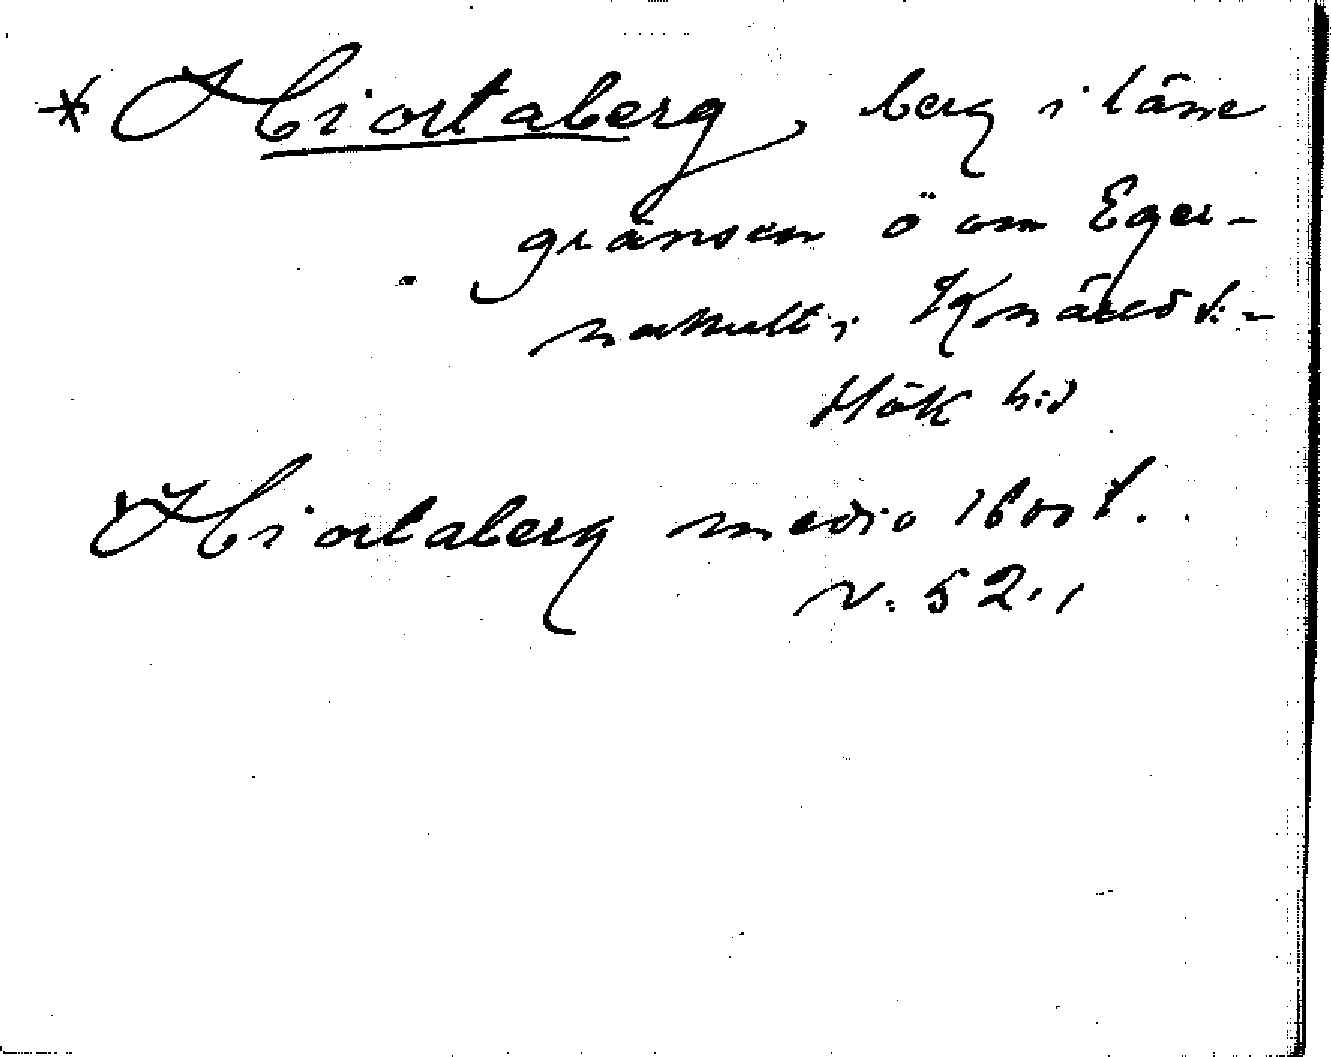 * Hiortaberg, berg i läns
gränsen ö om Eger-
nahult i Knäred s:-
Hök h:d
Hiortaberg medio 1600 t.
v. 52.